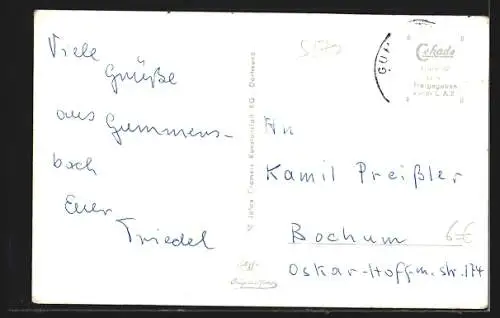 Viele
Grüße
aus Gummers-
bach
Euer
Friedel
5270
GU
Cekade
Freigegeben
Cramers Kunstanstalt KG · Dortmund
An
Kamil Preißler
Bochum
Oskar-Hoffm.str.174
6€